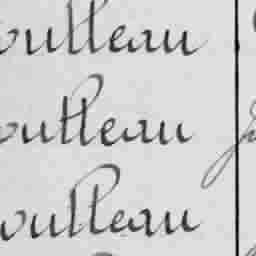 outteau
outteau
outteau